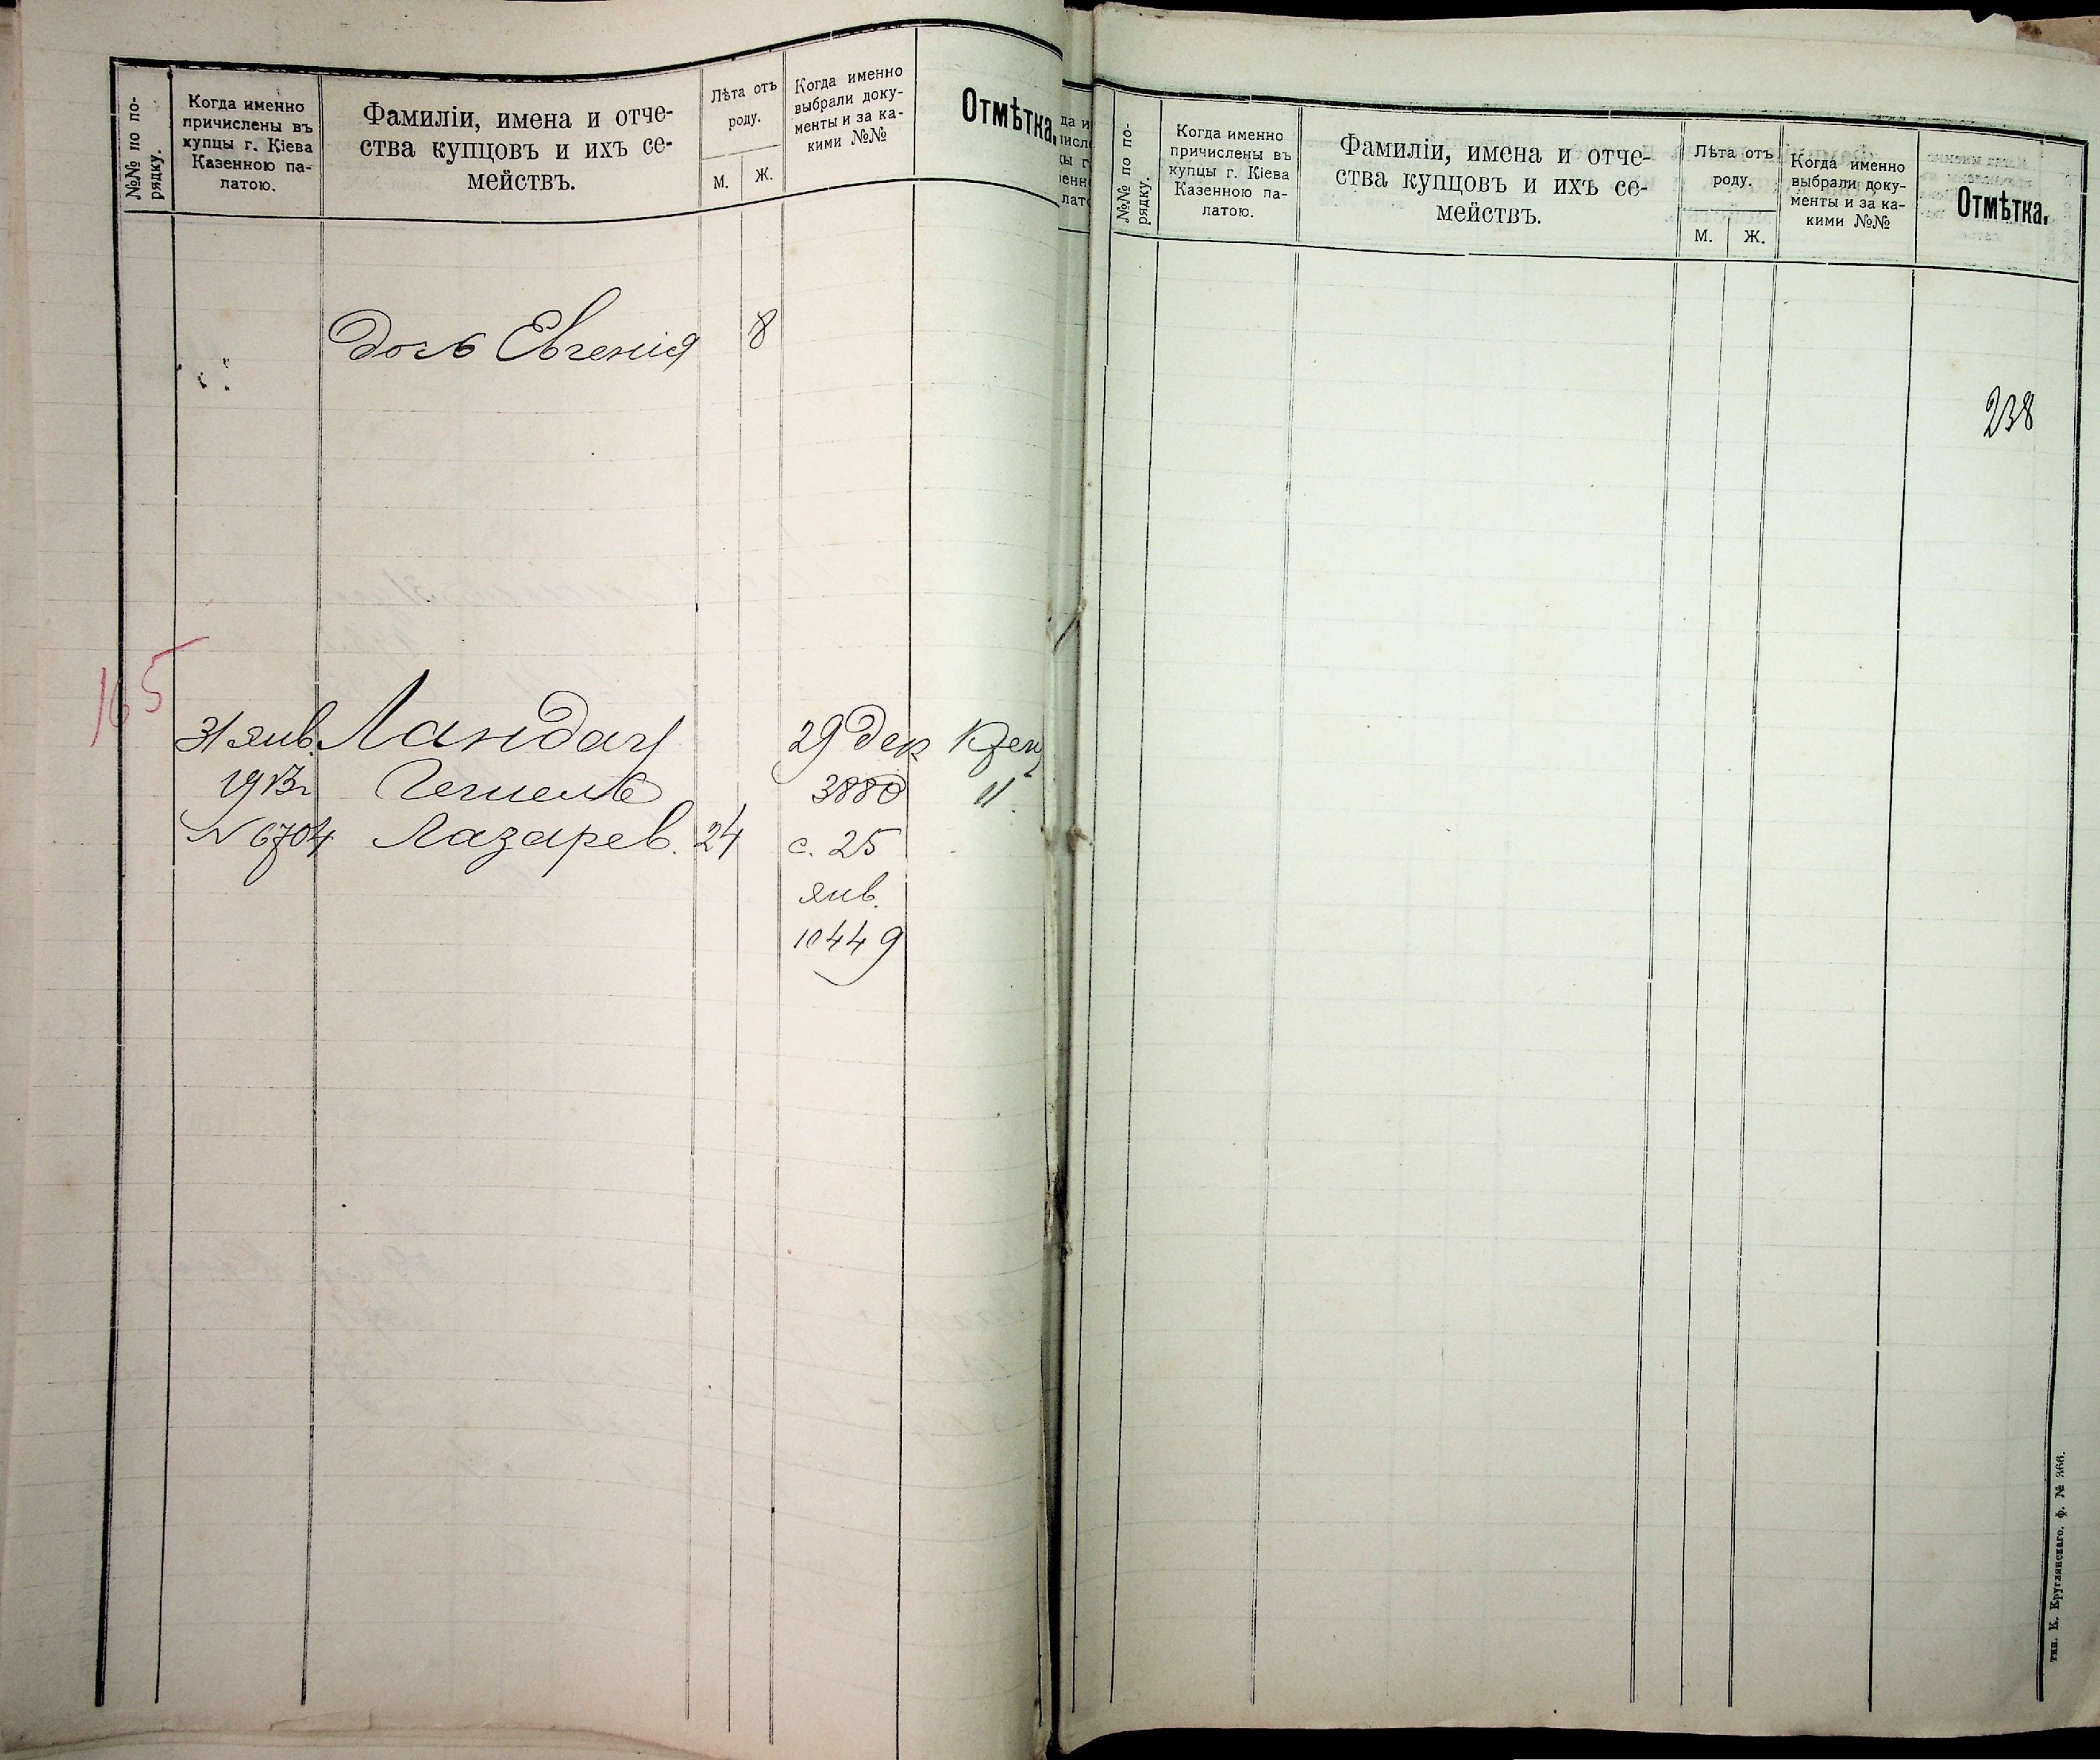 №№ по по-
рядку.
Когда именно
причислены въ
купцы г. Кіева
Казенною па-
латою.
Фамиліи, имена и отче-
ства купцовъ и ихъ се-
мействъ.
Лѣта отъ
роду.
М.
Ж.
Когда именно
выбрали доку-
менты и за ка-
кими №№
Отмѣтка.
дочь Евгенія 8
165
31 янв. Ландау 29 дек
1913г 3880 11
N 6704 Лазарев. 24 с. 25
янв.
10449
№№ по по-
рядку.
Когда именно
причислены въ
купцы г. Кіева
Казенною па-
латою.
Фамиліи, имена и отче-
ства купцовъ и ихъ се-
мействъ.
Лѣта отъ
роду.
М.
Ж.
Когда именно
выбрали доку-
менты и за ка-
кими №№
Отмѣтка.
238
тип. К. Круглянскаго. ф. № 366.